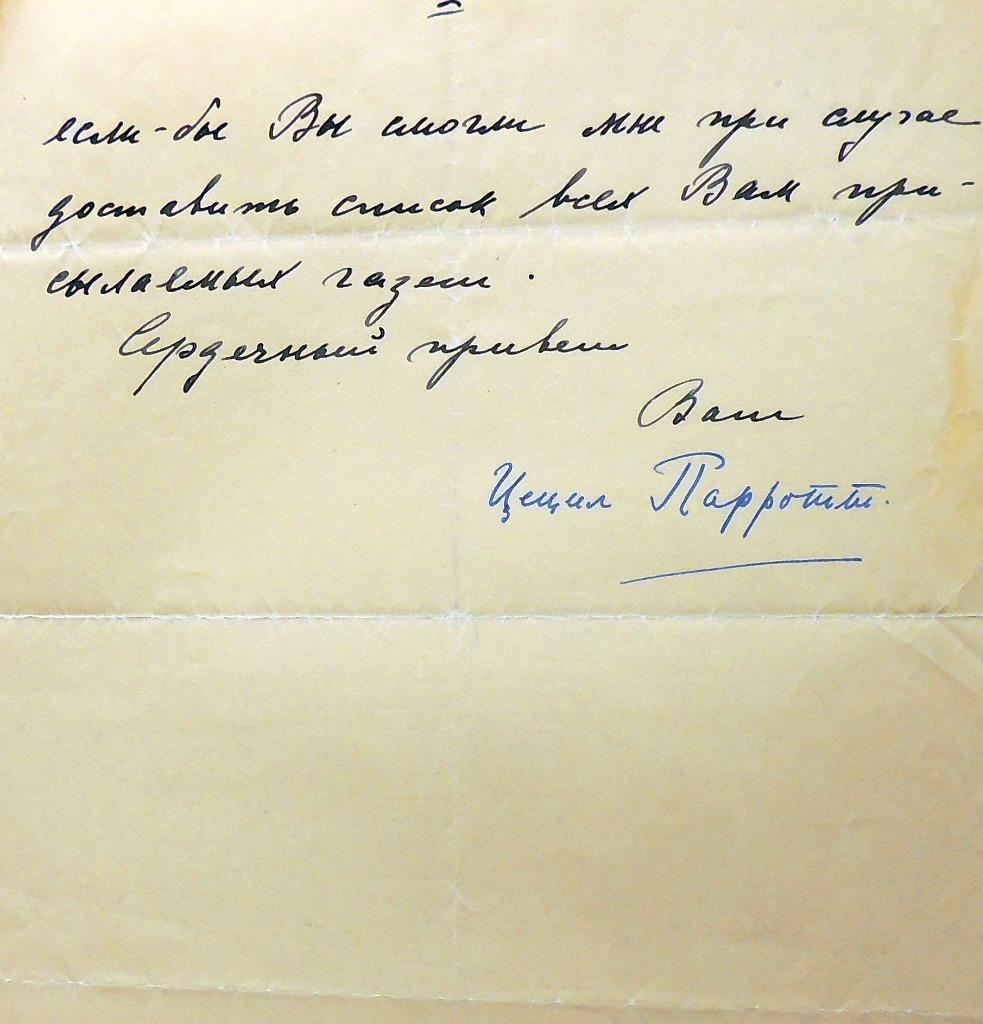 если-бы Вы смогли мне при случае
доставить список всех Вам при-
сылаемых газет.
Сердечный привет
Ваш
Цецил Парротт.